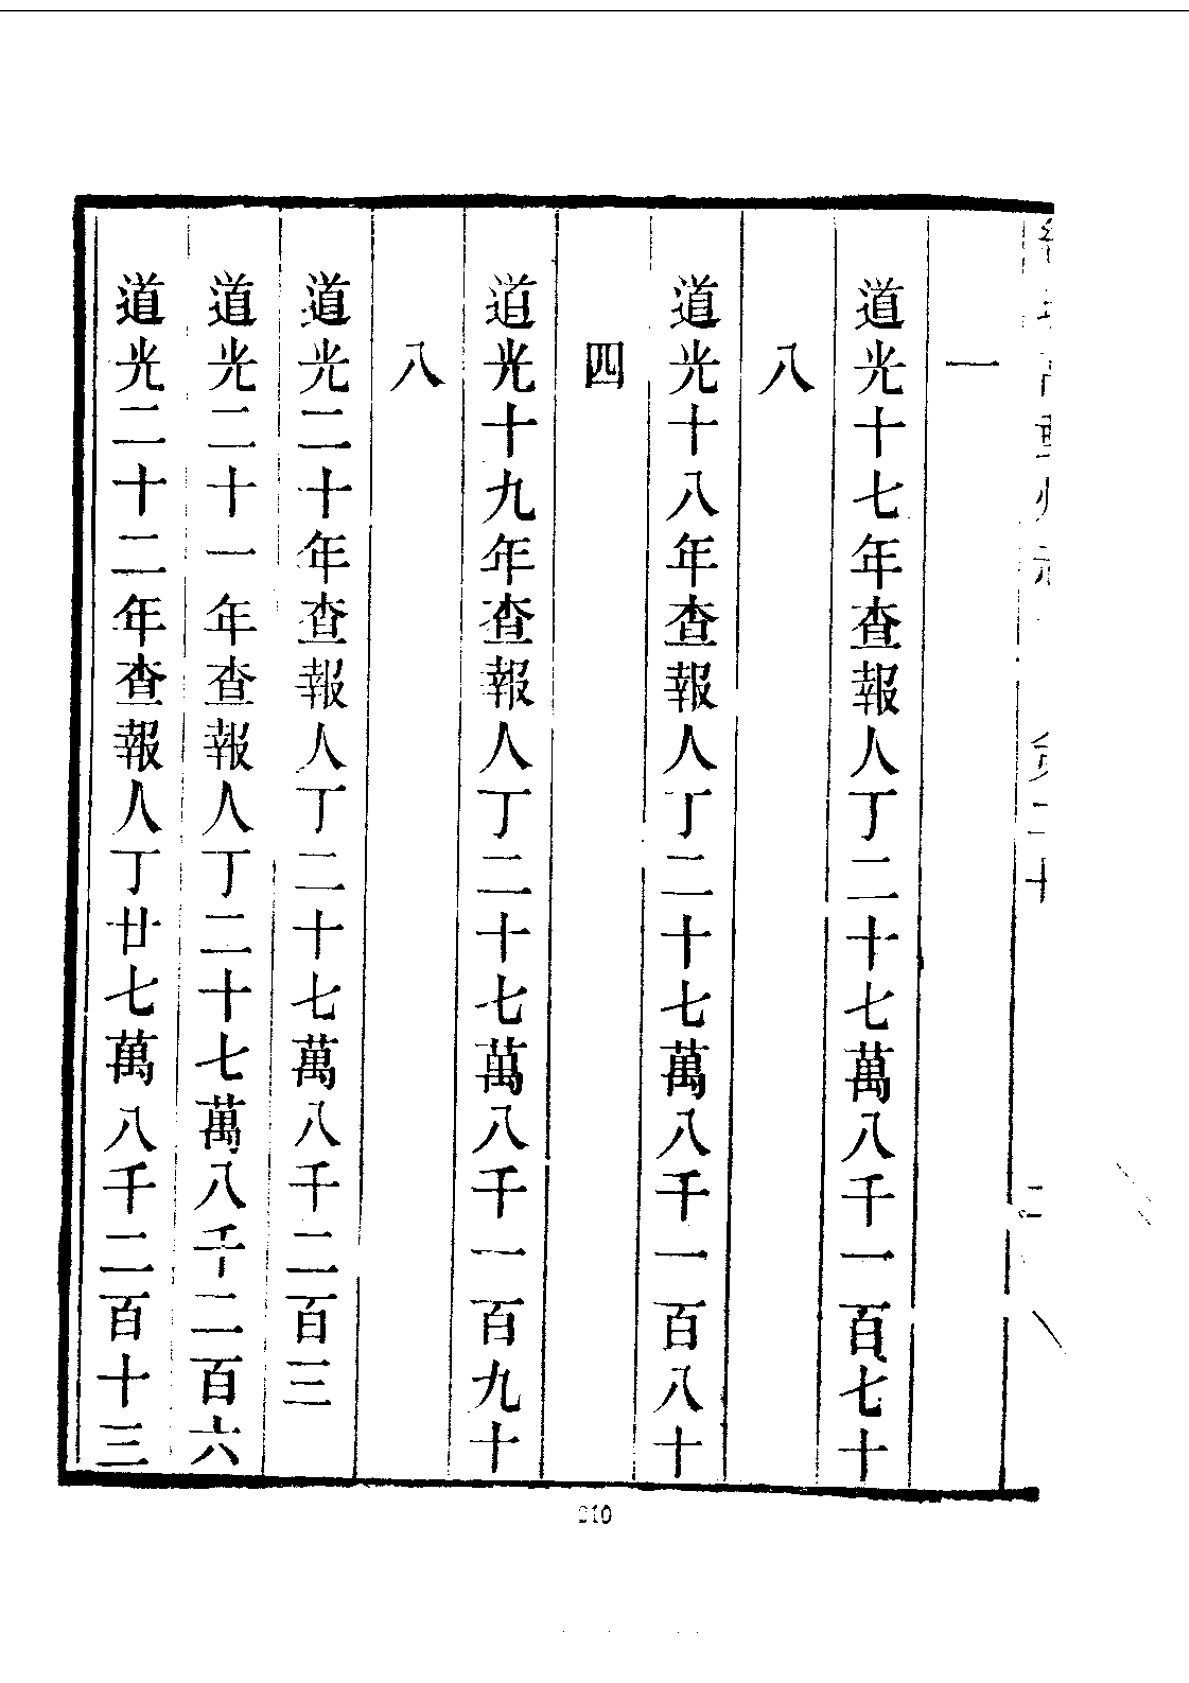 一
道光十七年查報人丁二十七萬八千一百七十
八
道光十八年查報人丁二十七萬八千一百八十
四
道光十九年查報人丁二十七萬八千一百九十
八
道光二十年查報人丁二十七萬八千二百三
道光二十一年查報人丁二十七萬八千二百六
道光二十二年查報人丁廿七萬八千二百十三